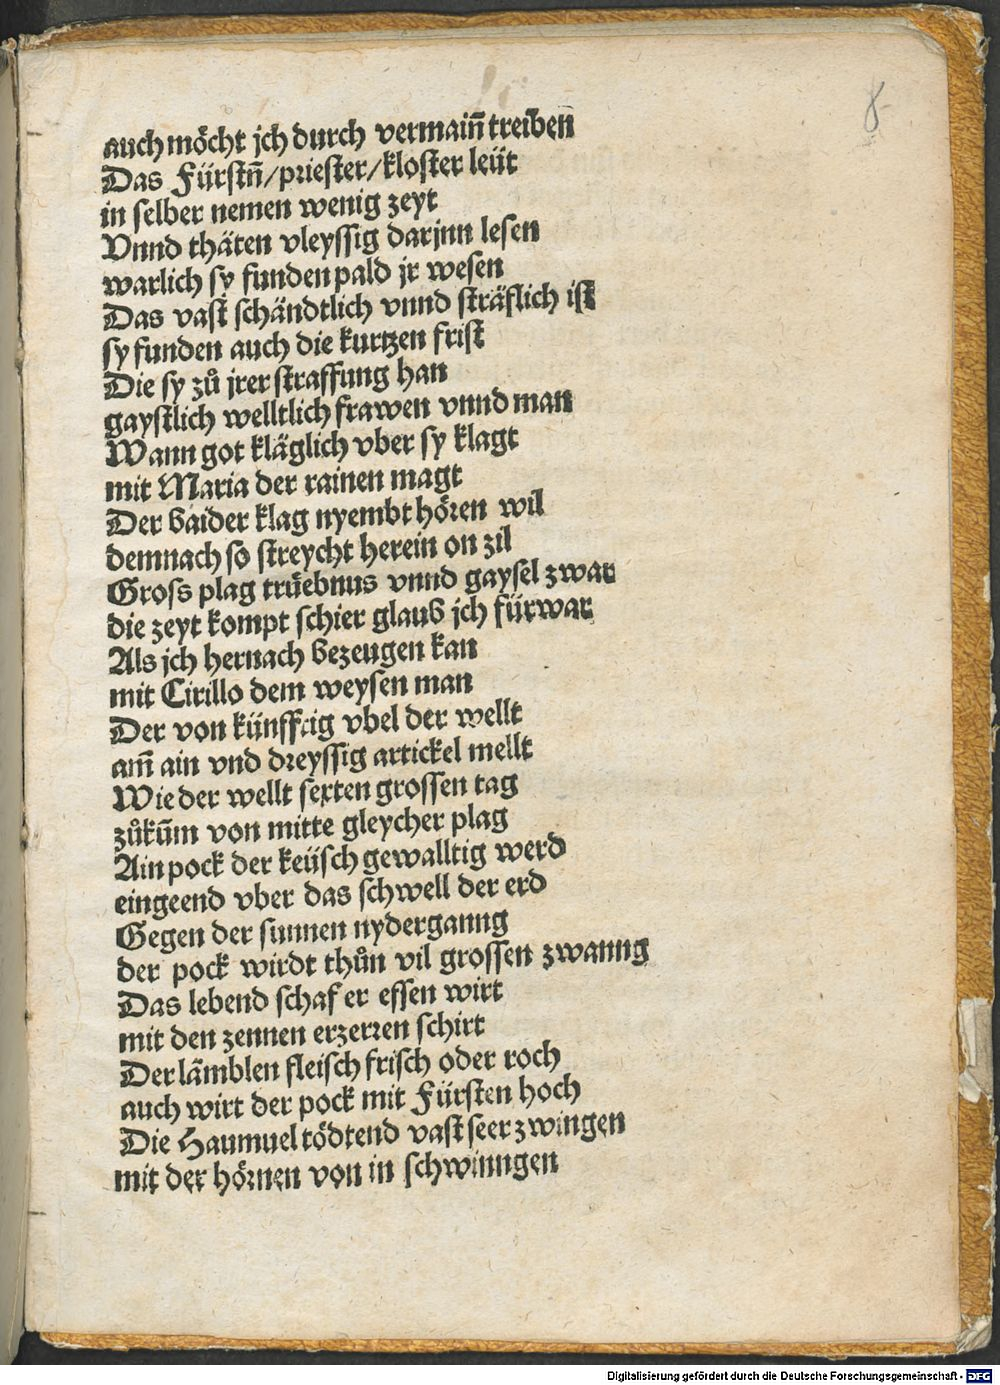 8
auch möcht jch durch vermaiñ treiben
Das Fürstñ/priester/kloster leüt
in selber nemen wenig zeyt
Vnnd thäten vleyssig darjnn lesen
warlich sy funden pald jr wesen
Das vast schändtlich vnnd sträflich ist
sy funden auch die kurtzen frist
Die sy zů jrer straffung han
gaystlich welltlich frawen vnnd man
Wann got kläglich vber sy klagt
mit Maria der rainen magt
Der baider klag nyembt hören wil
demnach so streycht herein on zil
Gross plag trüebnus vnnd gaysel zwar
die zeyt kompt schier glaub jch fürwar
Als jch hernach bezeugen kan
mit Cirillo dem weysen man
Der von künfftig vbel der wellt
am̃ ain vnd dreyssig artickel mellt
Wie der wellt sexten grossen tag
zůkum̃ von mitte gleycher plag
Ain pock der keüsch gewalltig werd
eingeend vber das schwell der erd
Gegen der sunnen nyderganng
der pock wirdt thůn vil grossen zwanng
Das lebend schaf er essen wirt
mit den zennen erzerren schirt
Der lãmblen fleisch frisch oder roch
auch wirt der pock mit Fürsten hoch
Die Haumuel tödtend vast seer zwingen
mit der hörnen von in schwinngen
Digitalisierung gefördert durch die Deutsche Forschungsgemeinschaft - DFG